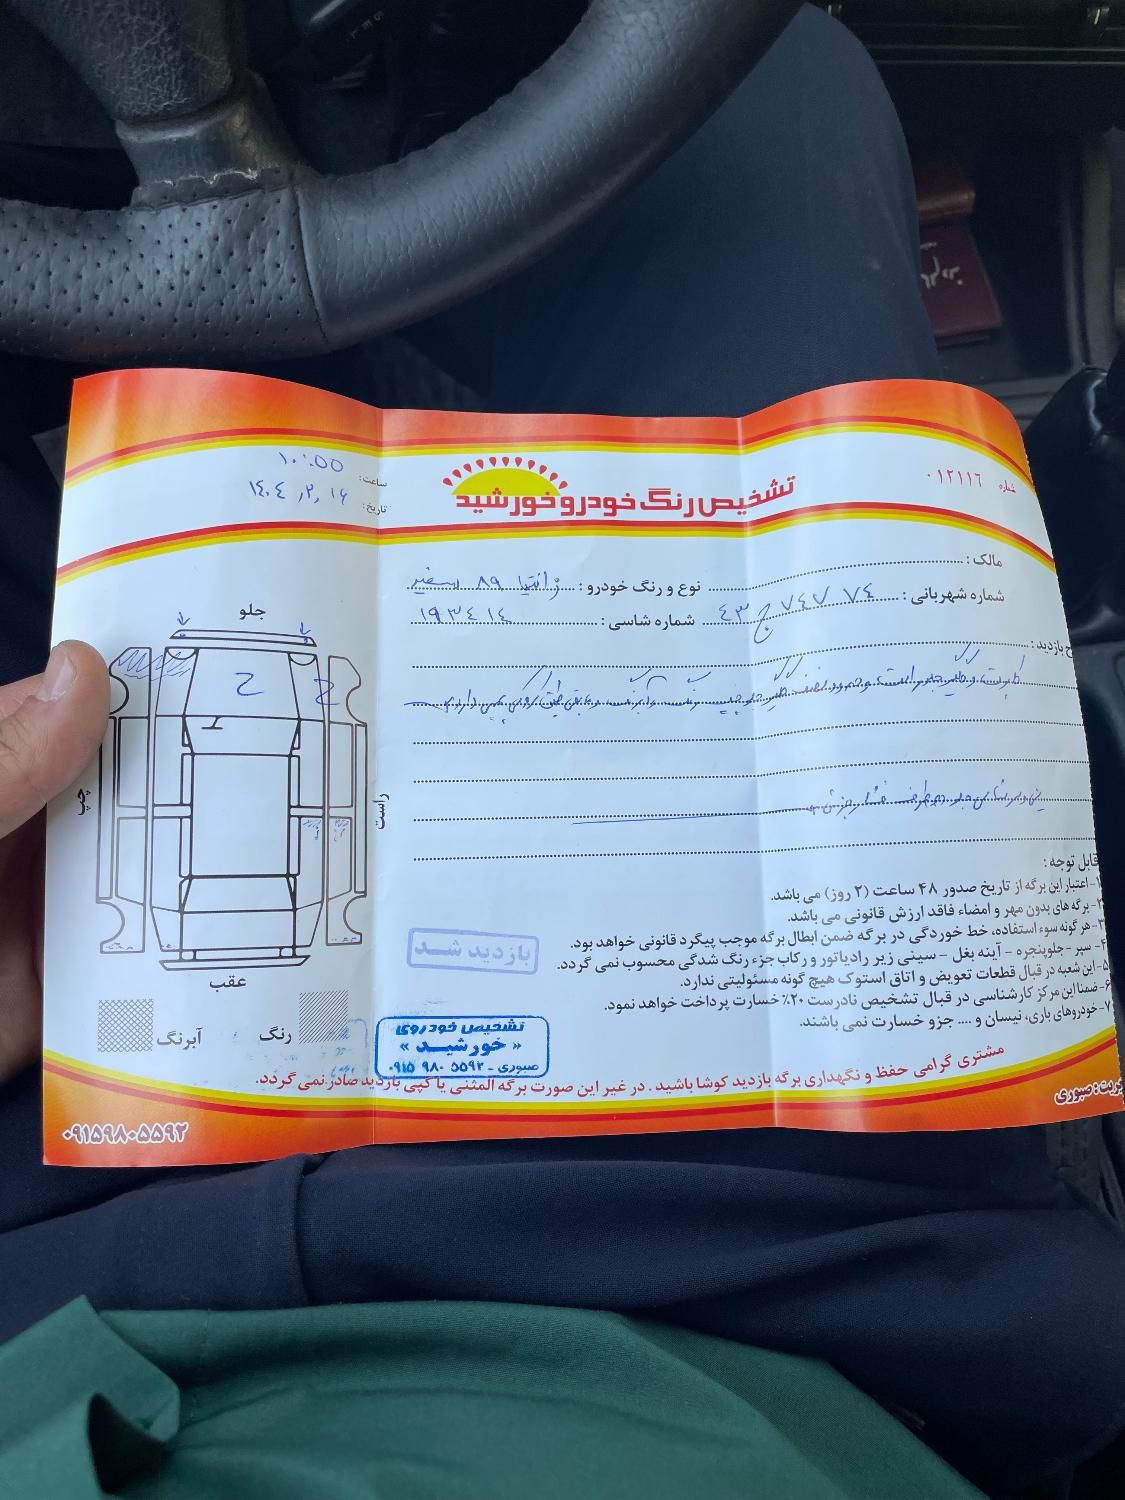 شماره ۰۱۲۱۱۶
تشخیص رنگ خودرو خورشید
ساعت: ۱۰:۵۵
تاریخ: ۱۴۰۴,۲,۱۶
مالک :
شماره شهربانی : ۷۴ ۷۴۷ ج ۴۳
نوع و رنگ خودرو : زانتیا ۸۹ سفید
شماره شاسی : ۱۹۳۴۱۴
ح بازدید :
جلو
چپ
راست
عقب
رنگ
آبرنگ
قابل توجه :
۱- اعتبار این برگه از تاریخ صدور ۴۸ ساعت (۲ روز) می باشد.
۲- برگه های بدون مهر و امضاء فاقد ارزش قانونی می باشد.
۳- هر گونه سوء استفاده، خط خوردگی در برگه ضمن ابطال برگه موجب پیگرد قانونی خواهد بود.
۴- سپر - جلوپنجره - آینه بغل - سینی زیر رادیاتور و رکاب جزء رنگ شدگی محسوب نمی گردد.
۵- این شعبه در قبال قطعات تعویض و اتاق استوک هیچ گونه مسئولیتی ندارد.
۶- ضمنا این مرکز کارشناسی در قبال تشخیص نادرست ۲۰٪ خسارت پرداخت خواهد نمود.
۷- خودروهای باری، نیسان و .... جزو خسارت نمی باشند.
بازدید شد
تشخیص خودروی
« خورشید »
صبوری - ۰۹۱۵ ۹۸۰ ۵۵۹۲
مشتری گرامی حفظ و نگهداری برگه بازدید کوشا باشید . در غیر این صورت برگه المثنی یا کپی بازدید صادر نمی گردد.
یریت: صبوری
۰۹۱۵۹۸۰۵۵۹۲